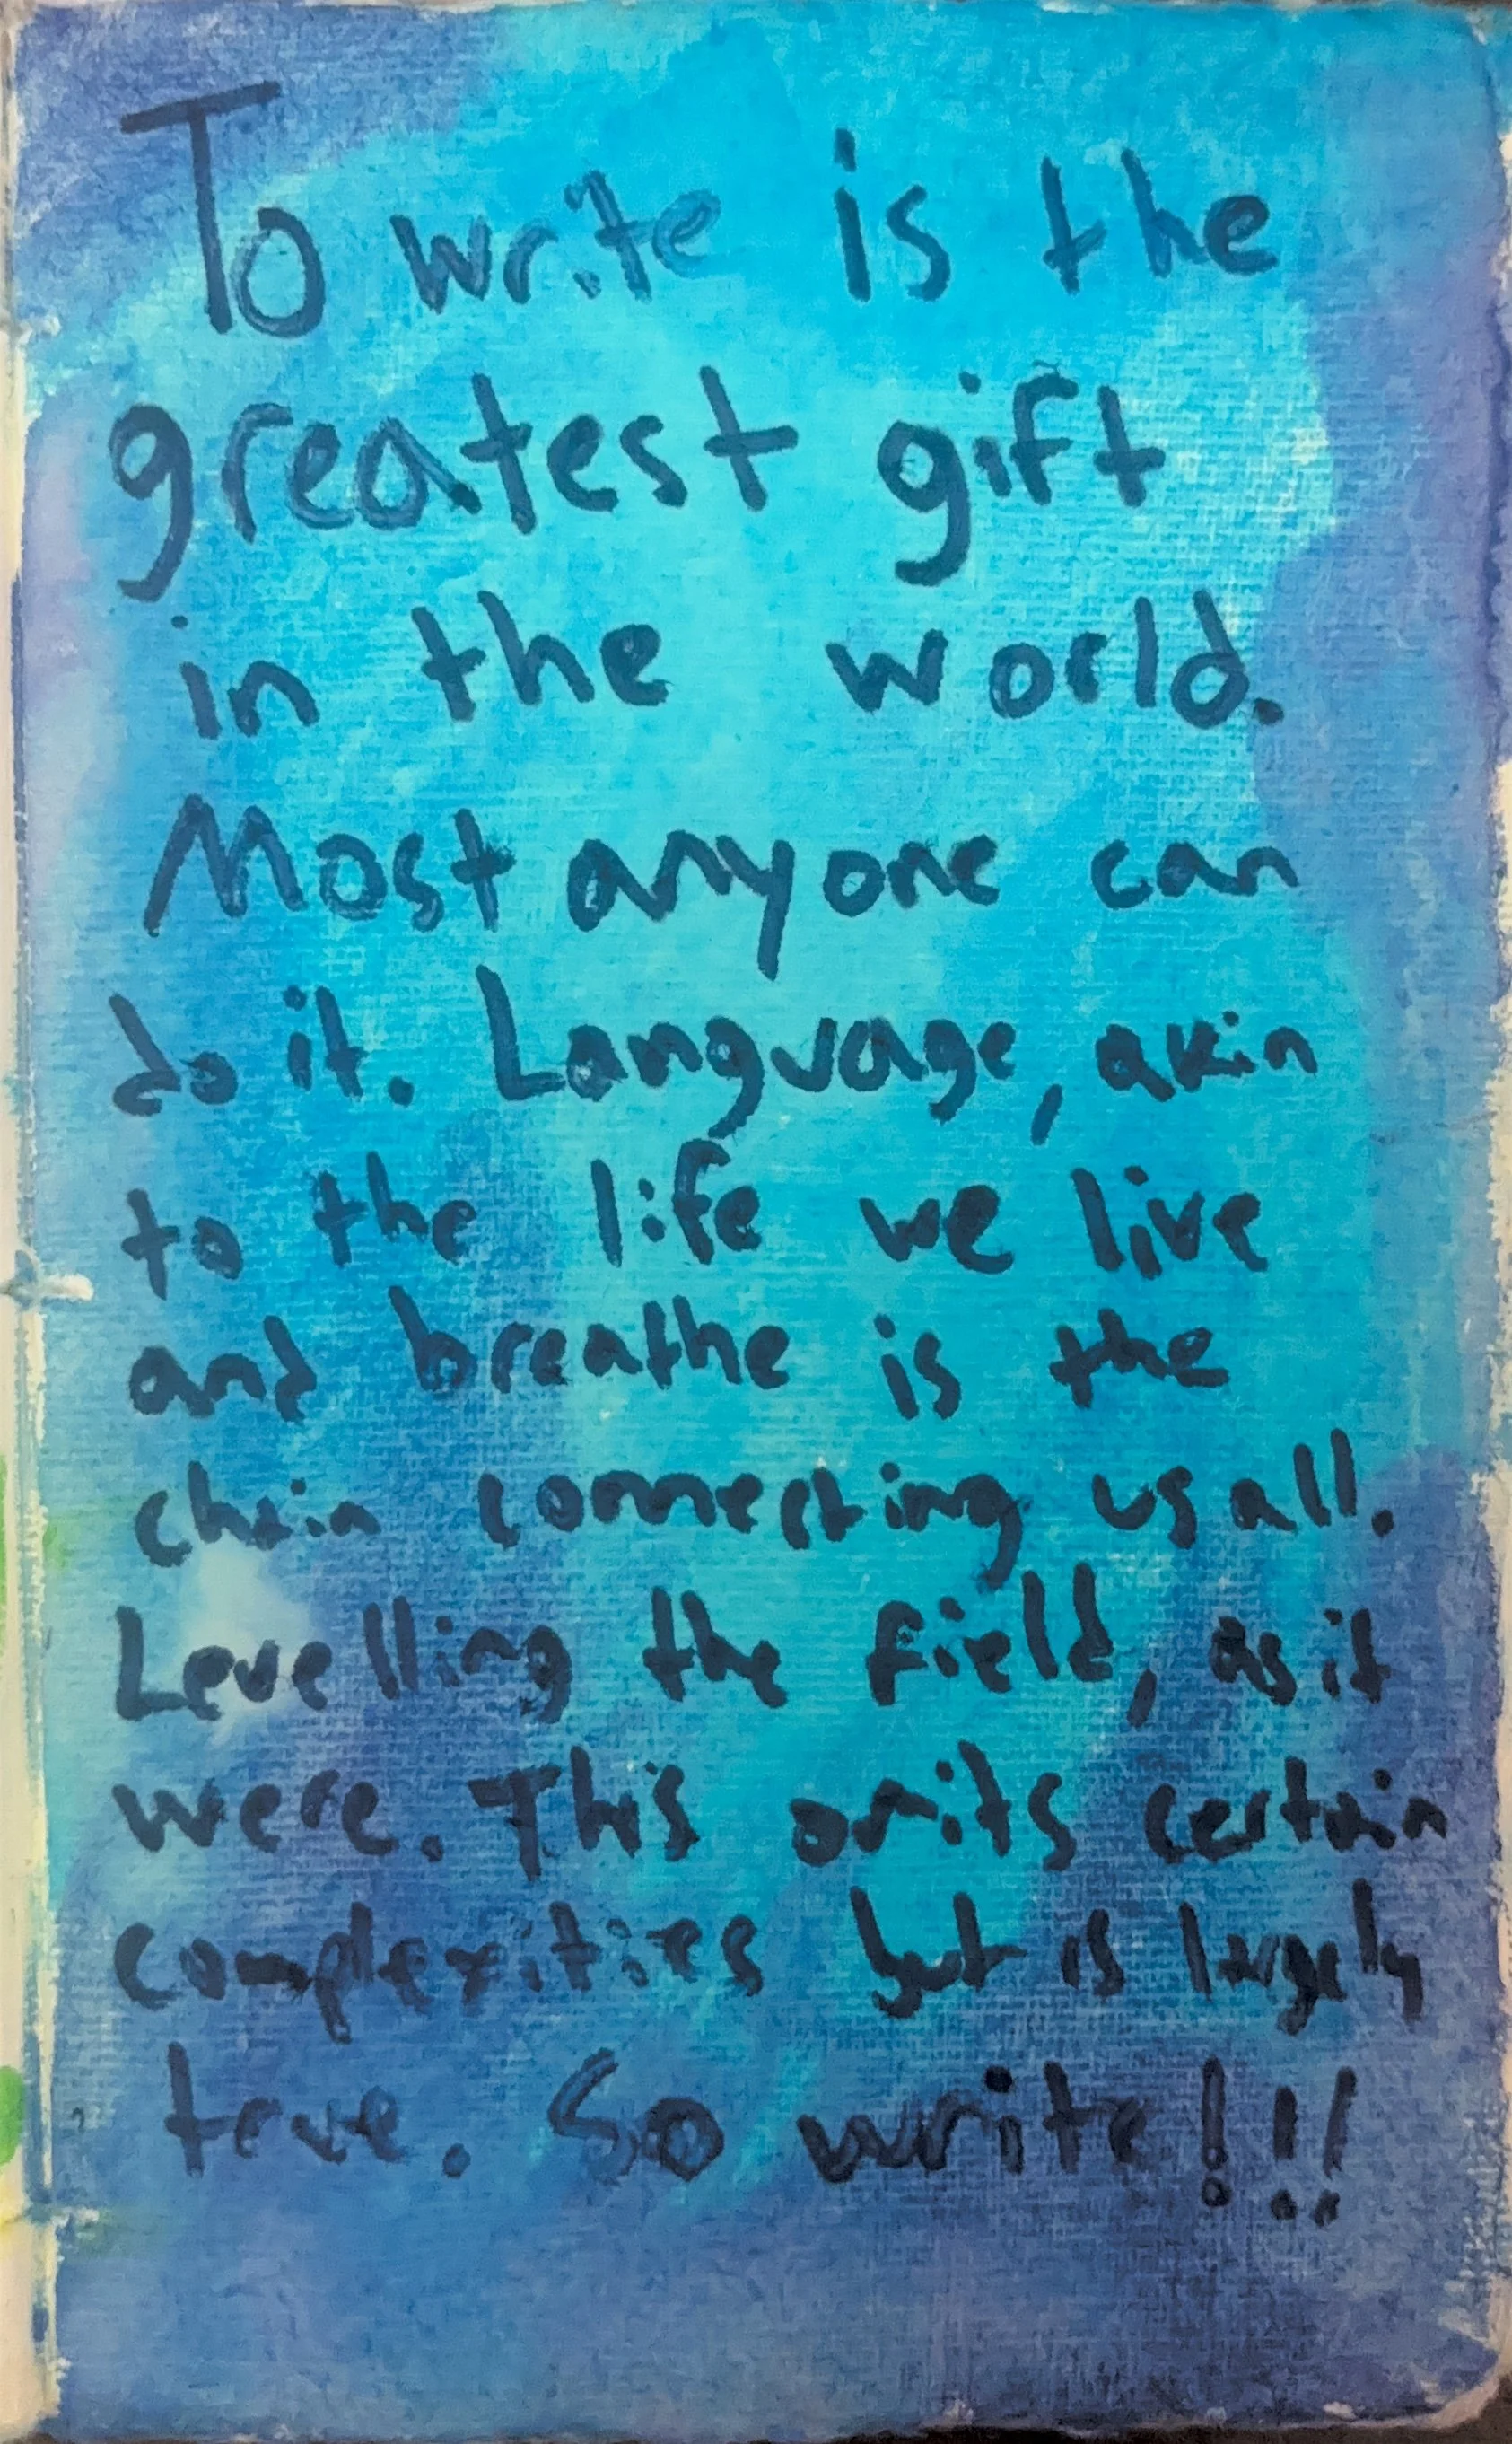 To write is the
greatest gift
in the world.
Most anyone can
do it. Language, akin
to the life we live
and breathe is the
chain connecting us all.
Levelling the field, as it
were. This omits certain
complexities but is largely
true. So write!!!